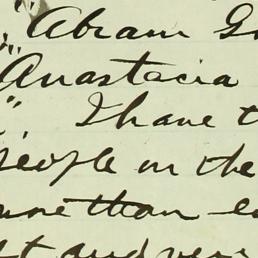 " Abram G
Anastacia
". I have t
people on the
more than
ft and very